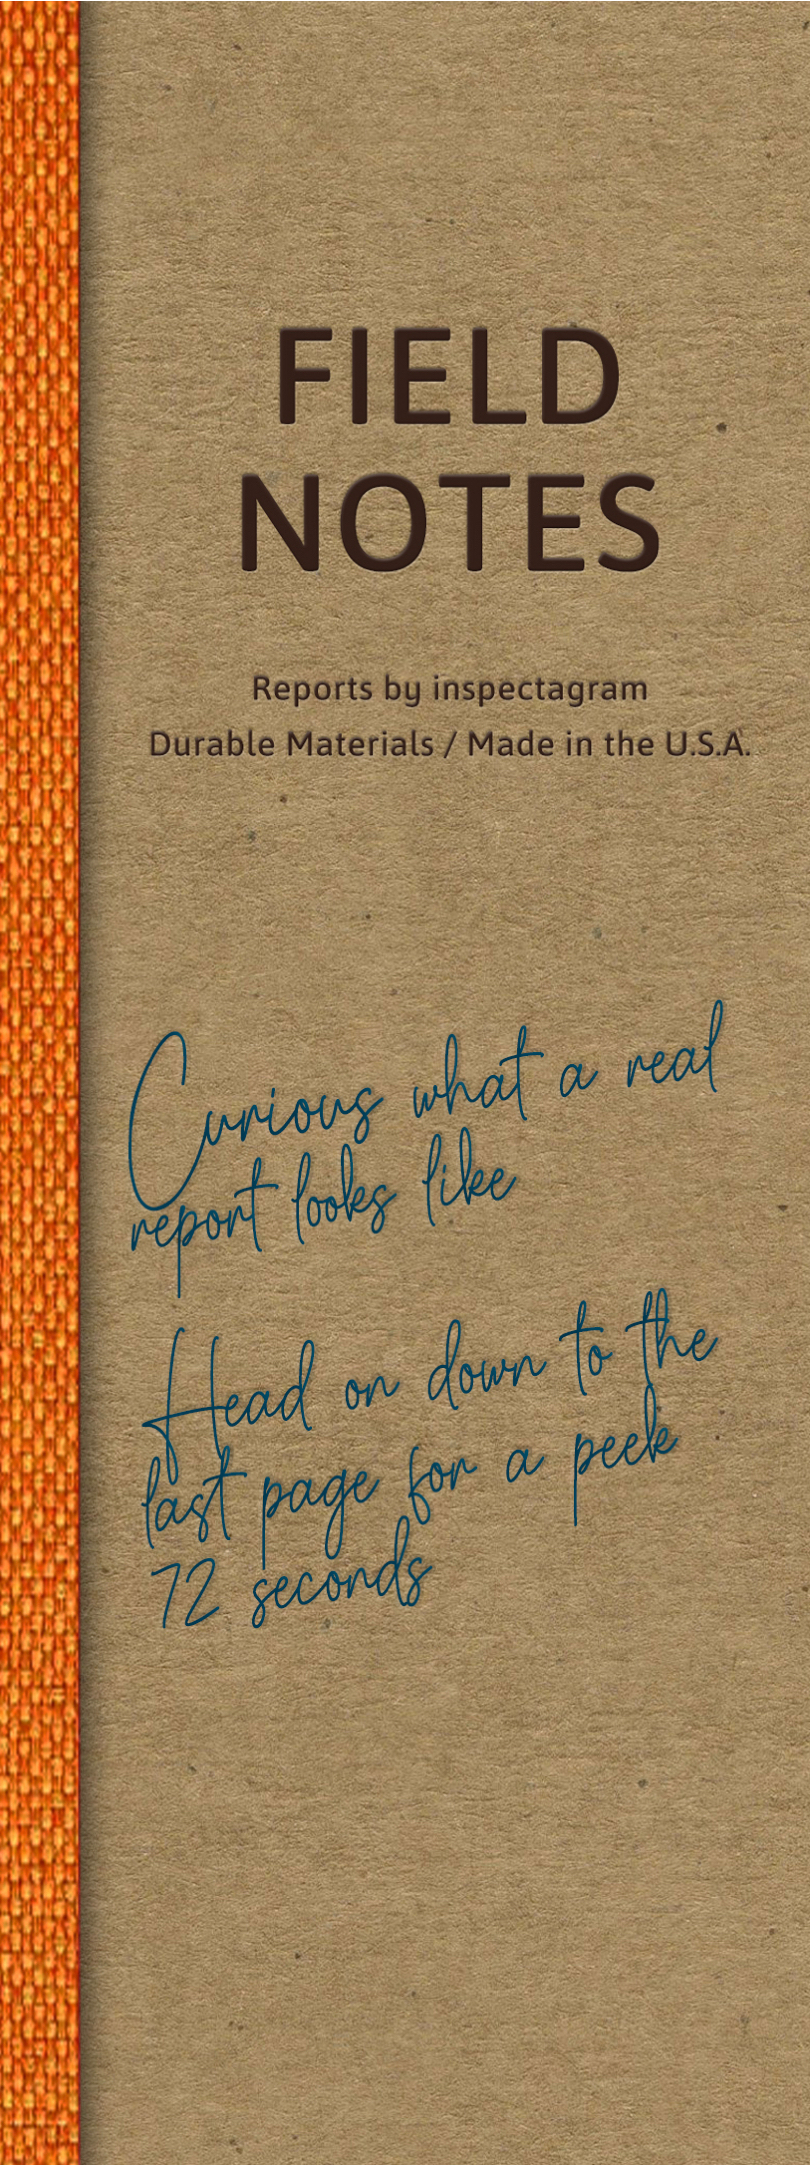 FIELD
NOTES
Reports by inspectagram
Durable Materials / Made in the U.S.A.
Curious what a real
report looks like
Head on down to the
last page for a peek
72 seconds